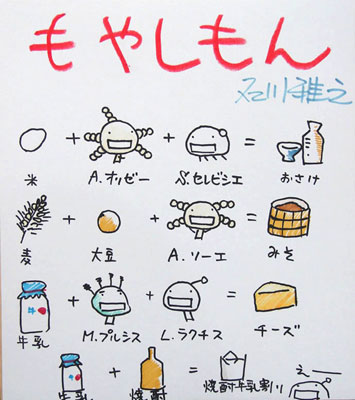 もやしもん
石川雅之
米 + A.オリゼー + S.セレビシエ = おさけ
麦 + 大豆 + A.ソーエ = みそ
牛乳 + M.プルシス + L.ラクチス = チーズ
牛乳 + 焼酎 = 焼酎牛乳割り
え――